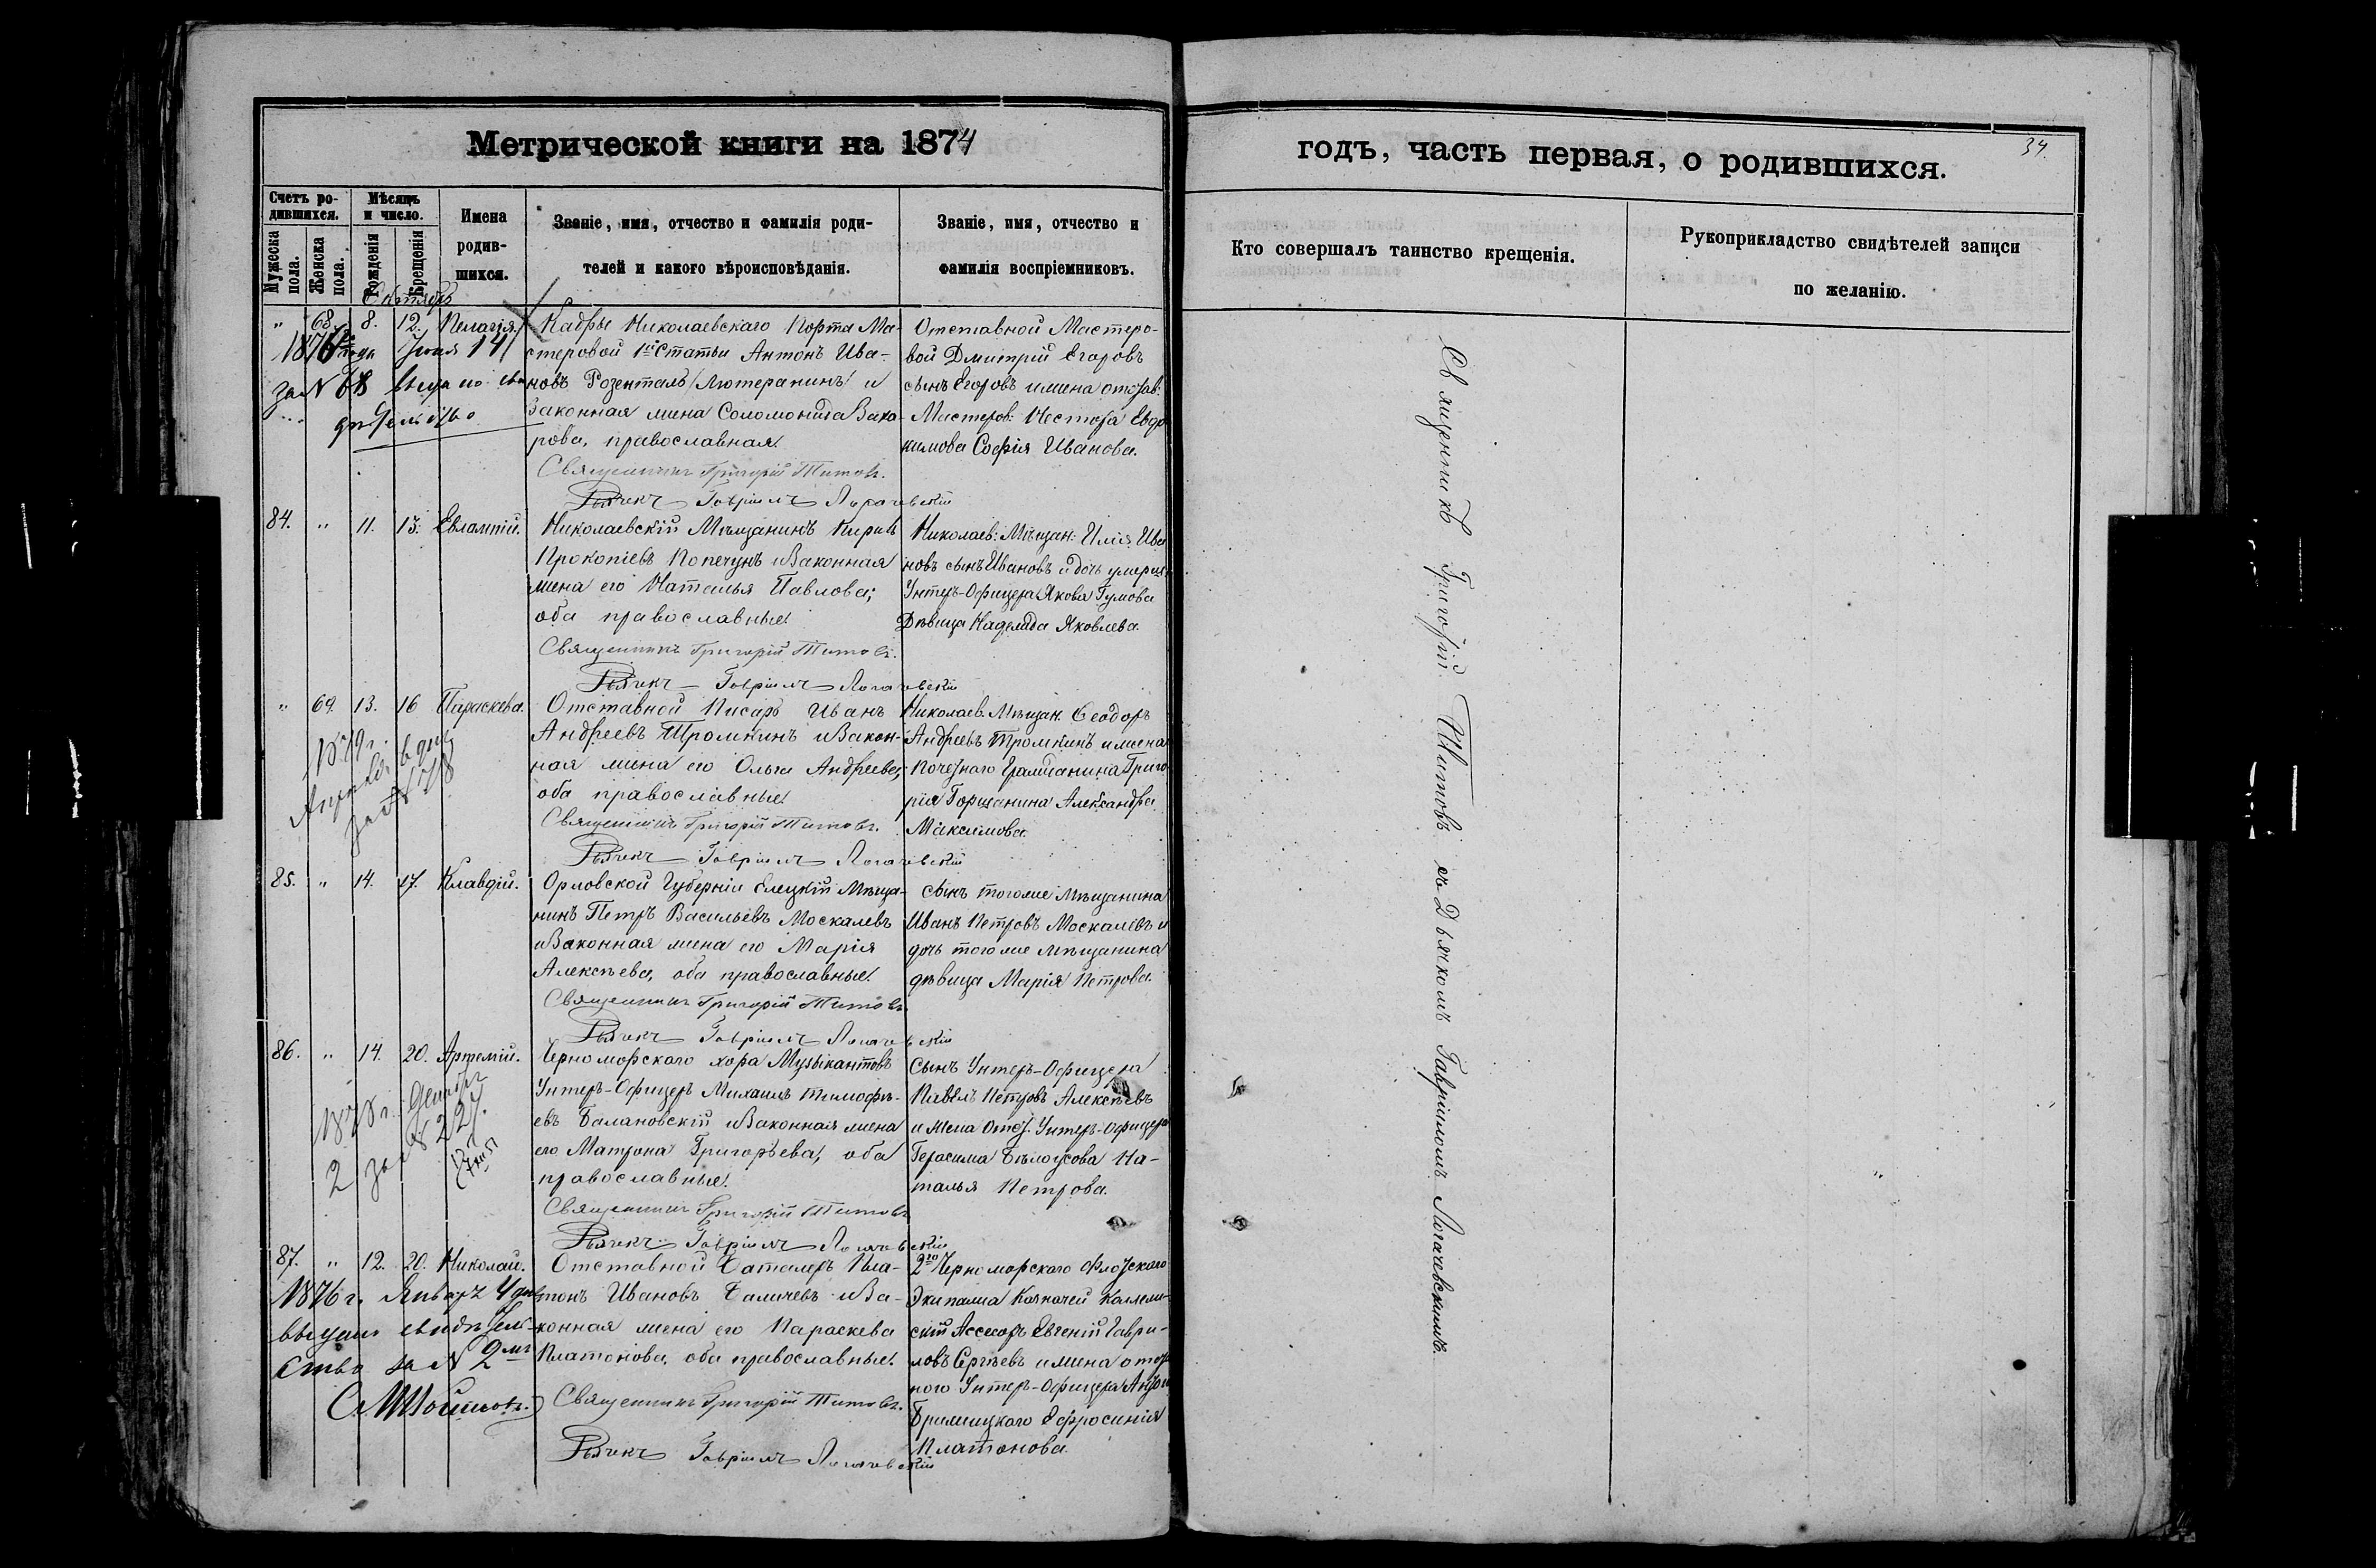 Метрической книги на 1874
Счетъ ро-
дившихся.
Мужеска пола.
Женска пола.
Мѣсяцъ
и число.
Рожденія
Крещенія
Имена
родив-
шихся.
Званіе, имя, отчество и фамилія роди-
телей и какого вѣроисповѣданія.
Званіе, имя, отчество и
фамилія воспріемниковъ.
Октябрь
" 68. 8. 12. Пелагія.
Кадры Николаевскаго Порта Ма-
стеровой 1й Статьи Антонъ Ива-
новъ Розенталь /лютеранинъ/ и
законная жена Соломонида Заха-
рова, православная.
Священникъ Григорій Титовъ.
Дьячекъ Гавріилъ Логачевскій
Отставной Мастеро-
вой Дмитрій Егоровъ
сынъ Егоровъ и жена отстав:
Мастеров: Нестора Евдо-
кимова Софія Иванова.
1876 года Іюня 14
за N 68
84. " 11. 13. Евлампій.
Николаевскій Мѣщанинъ Кирилъ
Прокопіевъ Попечунъ и Законная
жена его Наталья Павлова;
оба православные.
Священникъ Григорій Титовъ.
Дьячекъ Гавріилъ Логачевскій
Николаев: Мѣщан: Илія Ива-
новъ сынъ Ивановъ и дочь умерш.
Унтеръ-Офицера Якова Гумова
Дѣвица Надежда Яковлева.
" 69. 13. 16 Параскева.
Отставной Писарь Иванъ
Андреевъ Тромкинъ и Закон-
ная жена его Ольга Андреева;
оба православные.
Священникъ Григорій Титовъ.
Дьячекъ Гавріилъ Логачевскій
Николаев. Мѣщан. Ѳеодоръ
Андреевъ Тромкинъ и жена
почетнаго Гражданина Григо-
рія Горщанина Александра
Максимова.
85. " 14. 17. Клавдій.
Орловской Губерніи Елецкій Мѣща-
нинъ Петръ Васильевъ Москалевъ
и Законная жена его Марія
Алексѣева, оба православные.
Священникъ Григорій Титовъ.
Дьячекъ Гавріилъ Логачевскій
Сынъ тогоже Мѣщанина
Иванъ Петровъ Москалевъ и
дочь тогоже Мѣщанина
дѣвица Марія Петрова.
86. " 14. 20. Артемій.
Черноморскаго хора Музыкантовъ
Унтеръ-Офицеръ Михаилъ Тимофѣ-
евъ Балановскій и Законная жена
его Матрона Григорьева, оба
православные.
Священникъ Григорій Титовъ
Дьячекъ Гавріилъ Логачевскій
Сынъ Унтеръ-Офицера
Павелъ Петровъ Алексѣевъ
и жена Отст. Унтеръ-Офицера
Герасима Бѣлоусова На-
талья Петрова.
87. " 12. 20. Николай.
Отставной Баталеръ Пла-
тонъ Ивановъ Галичевъ и За-
конная жена его Параскева
Платонова, оба православные.
Священникъ Григорій Титовъ.
Дьячекъ Гавріилъ Логачевскій
2го Черноморскаго Флотскаго
Экипажа Казначей Коллеж-
скій Ассесоръ Евгеній Гаври-
ловъ Сергѣевъ и жена отст
ного Унтеръ-Офицера
Ефросинія
Платонова.
1876 г. Января 4 дня
выдано свидѣтель-
ство за N 2мъ
годъ, часть первая, о родившихся.
34.
Кто совершалъ таинство крещенія.
Рукоприкладство свидѣтелей записи
по желанію.
Священникъ Григорій Титовъ съ Дьячкомъ Гавріиломъ Логачевскимъ.